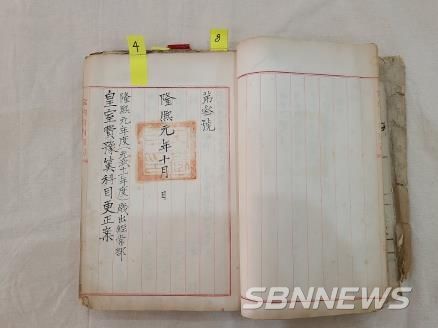 4
8
第參號
隆熙元年十月 日
隆熙元年度(光武十一年度)歲出經常部
皇室費豫算科目更正案
SBNNEWS